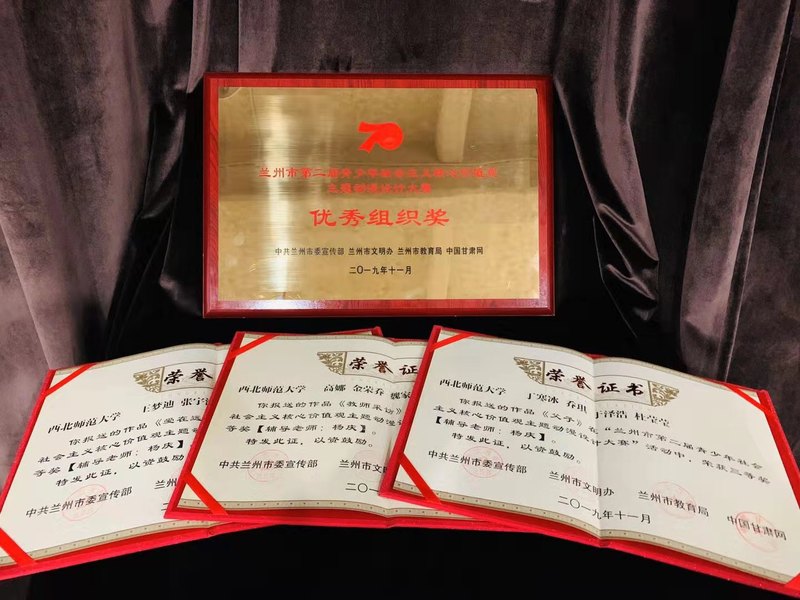 70
兰州市第二届青少年社会主义核心价值观
主题动漫设计大赛
优秀组织奖
中共兰州市委宣传部 兰州市文明办 兰州市教育局 中国甘肃网
二〇一九年十一月
荣誉
西北师范大学 王梦迪 张宇
你报送的作品《爱在远
社会主义核心价值观主题
等奖【辅导老师：杨庆】
特发此证，以资鼓励
中共兰州市委宣传部 兰
荣誉证
西北师范大学 高娜 金荣春 魏家
你报送的作品《教师采访》
社会主义核心价值观主题动漫
等奖【辅导老师：杨庆】。
特发此证，以资鼓励。
中共兰州市委宣传部 兰州市
二〇
荣誉证书
西北师范大学 丁寒冰 乔琪 于泽浩 杜莹莹
你报送的作品《父子》在“兰州市第二届青少年社会
主义核心价值观主题动漫设计大赛”活动中，荣获三等奖
【辅导老师：杨庆】。
特发此证，以资鼓励。
中共兰州市委宣传部 兰州市文明办 兰州市教育局 中国甘肃网
二〇一九年十一月